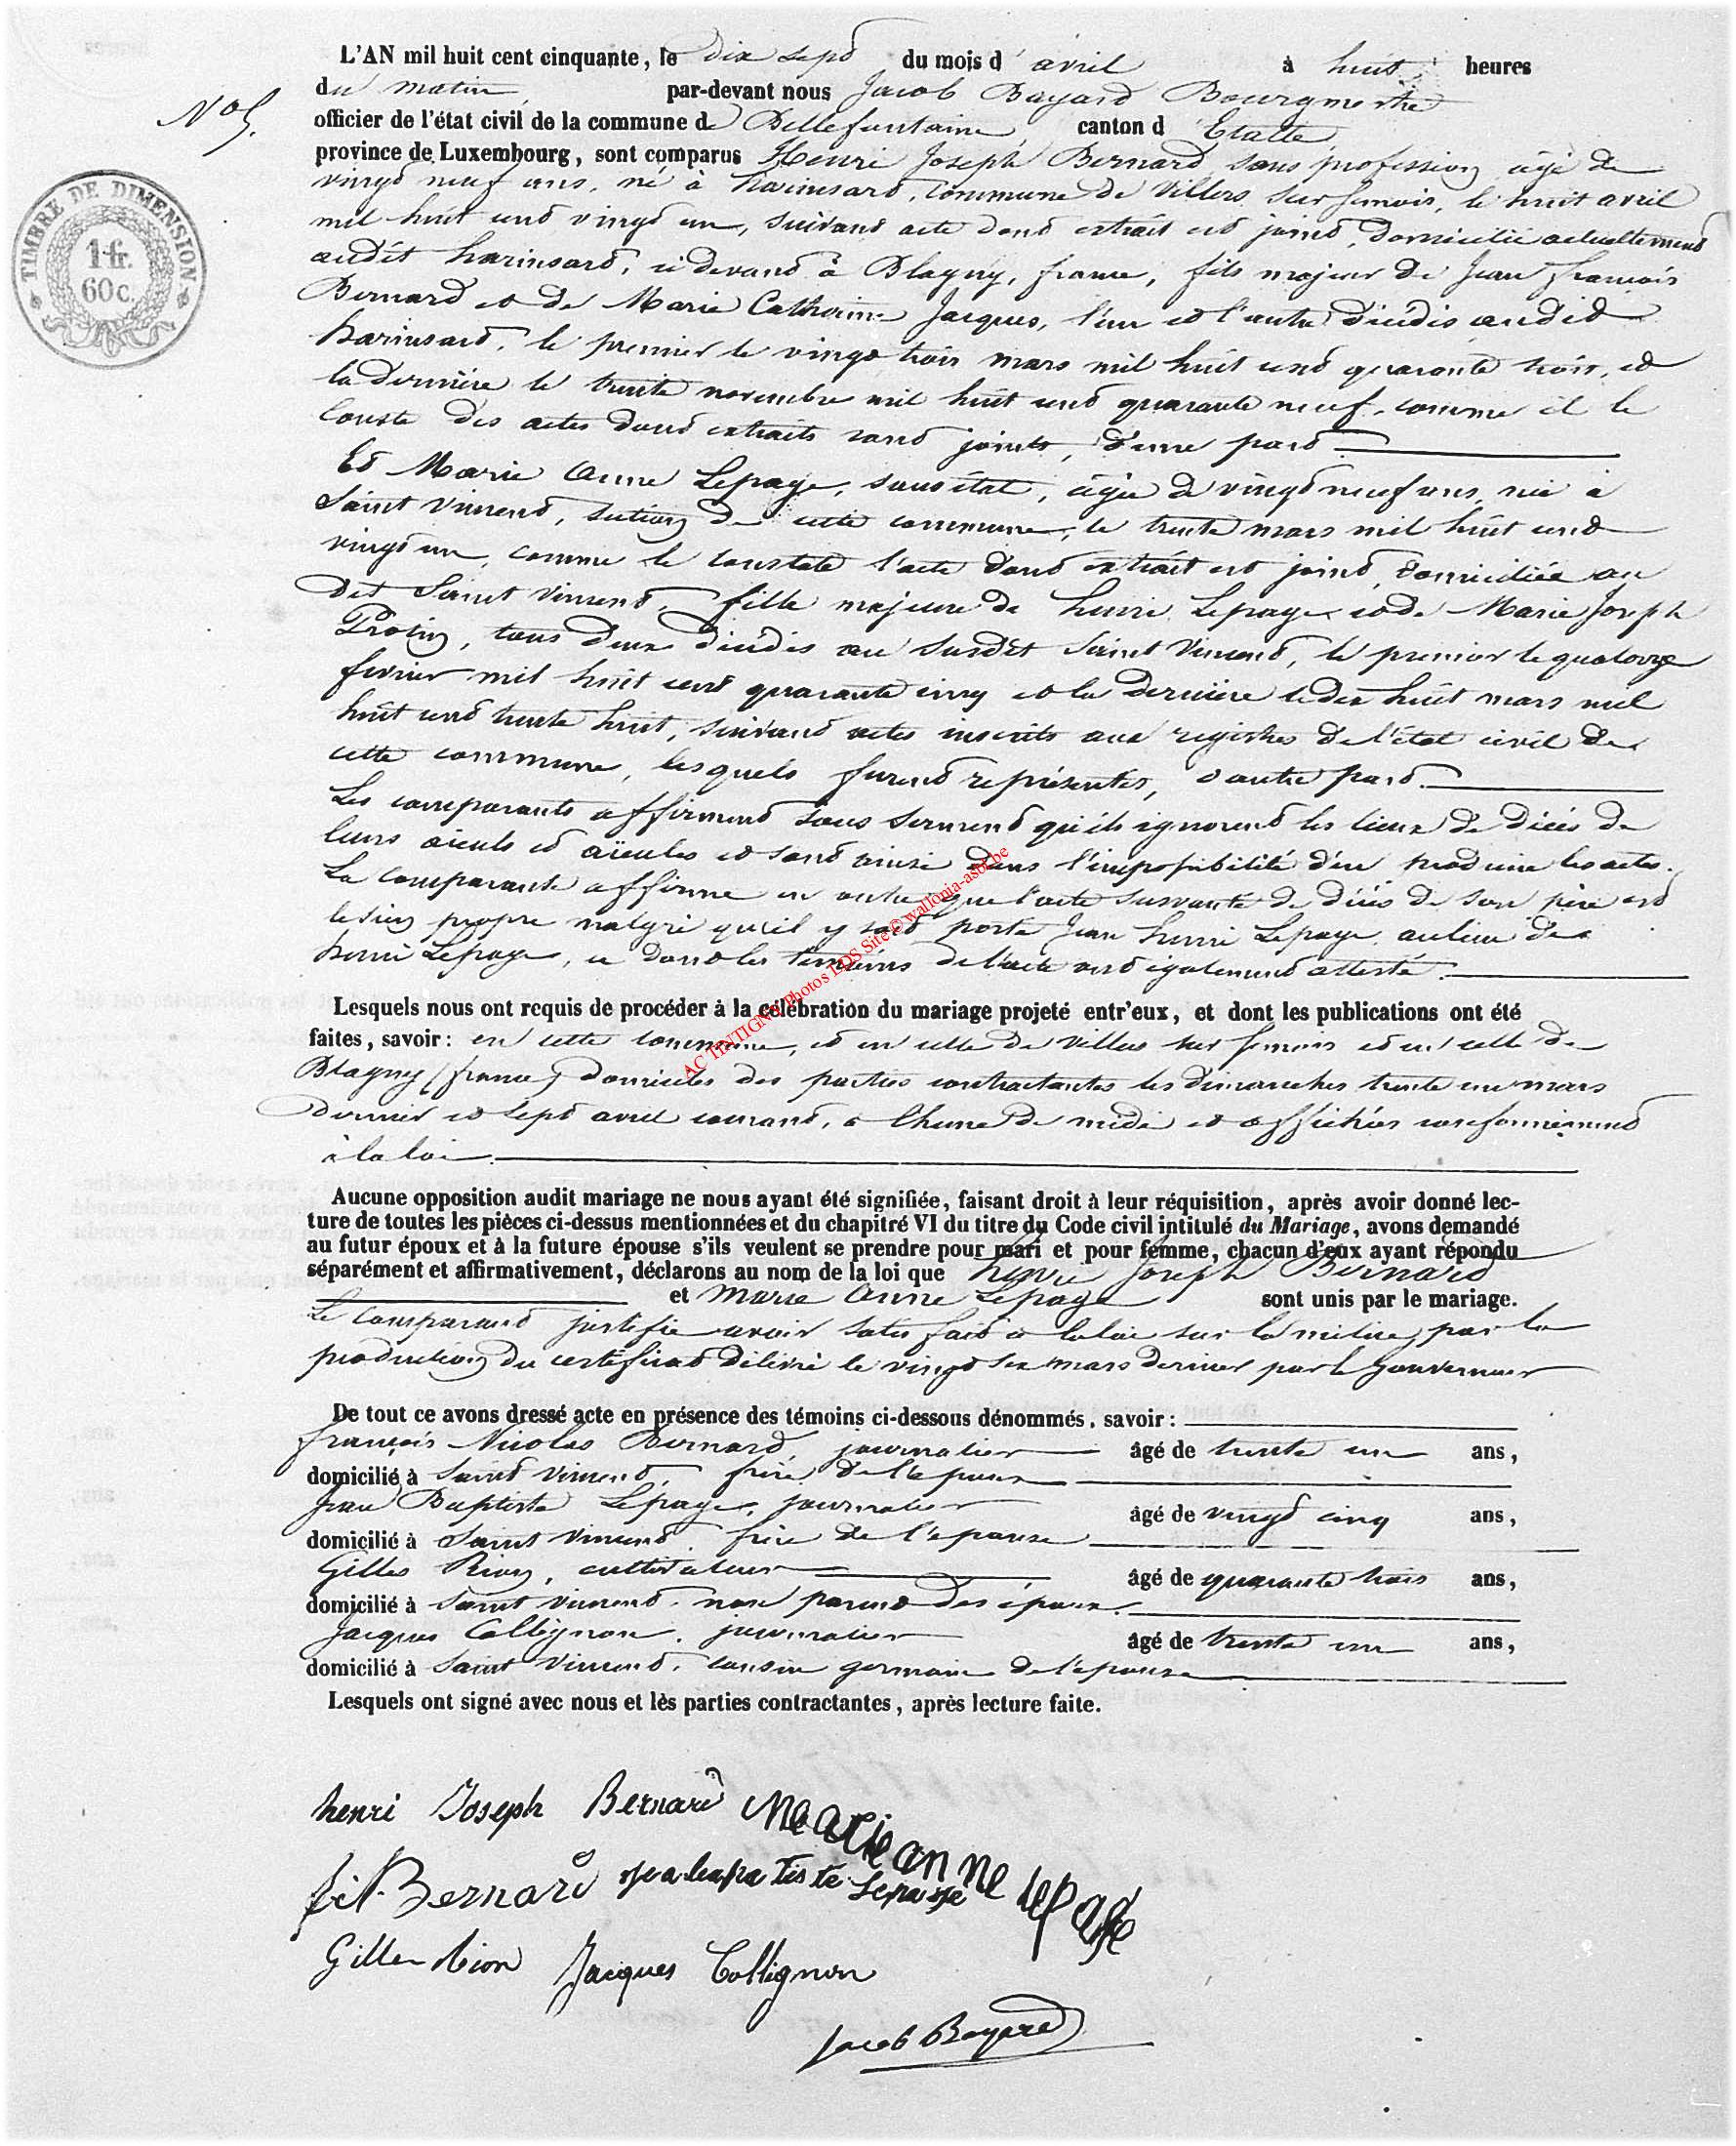 L'AN mil huit cent cinquante, le dix sept du mois d'avril à huit heures
du matin, par-devant nous Jacob Bayard Bourgmestre
N° 5.
officier de l'état civil de la commune de Bellefontaine, canton d'Etalle,
province de Luxembourg, sont comparus Henri Joseph Bernard sans profession, âgé de
vingt neuf ans, né à harinsard, commune de Villers sur semois, le huit avril
mil huit cent vingt un, suivant acte dont extrait est joint, domicilié actuellement
audit harinsard, ci devant à Blagny, france, fils majeur de Jean françois
Bernard et de Marie Catherine Jacques, l'un et l'autre décédés audit
harinsard, le premier le vingt trois mars mil huit cent quarante trois, et
la dernière le trente novembre mil huit cent quarante neuf, comme il le
conste des actes dont extraits sont joints, d'une part
Et Marie Anne Lepage, sans état, âgée de vingt neuf ans, née à
Saint Vincent, section de cette commune, le trente mars mil huit cent
vingt un, comme le constate l'acte dont extrait est joint, domiciliée au
dit Saint Vincent, fille majeure de henri Lepage et de Marie Joseph
Protin, tous deux décédés au susdit Saint Vincent, le premier le quatorze
fevrier mil huit cent quarante cinq et la dernière le dix huit mars mil
huit cent trente huit, suivant actes inscrits aux registres de l'état civil de
cette commune, lesquels furent représentés, d'autre part.
Les comparants affirment sous serment qu'ils ignorent les lieux de décès de
leurs aïeuls et aïeules et sont ainsi dans l'impossibilité d'en produire les actes.
La comparante affirme en outre que l'acte suivante de décès de son père est
le sien propre malgré qu'il y soit porté Jean henri Lepage, au lieu de
henri Lepage, ce dont les témoins de l'acte ont également attesté.
AC TINTIGNY Photos LDS Site © wallonia-asbl.be
Lesquels nous ont requis de procéder à la célébration du mariage projeté entr'eux, et dont les publications ont été
faites, savoir: en cette commune, et en celle de Villers sur semois et en celle de
Blagny (france) domiciles des parties contractantes les dimanches trente un mars
dernier et sept avril courant, à l'heure de midi et affichées conformément
à la loi.
Aucune opposition audit mariage ne nous ayant été signifiée, faisant droit à leur réquisition, après avoir donné lec-
ture de toutes les pièces ci-dessus mentionnées et du chapitré VI du titre du Code civil intitulé du Mariage, avons demandé
au futur époux et à la future épouse s'ils veulent se prendre pour mari et pour femme, chacun d'eux ayant répondu
séparément et affirmativement, déclarons au nom de la loi que henri Joseph Bernard
et marie Anne Lepage sont unis par le mariage.
Le comparant justifie avoir satisfait à la loi sur la milice, par la
production du certificat délivré le vingt six mars dernier par le gouverneur
De tout ce avons dressé acte en présence des témoins ci-dessous dénommés, savoir:
françois Nicolas Bernard, journalier âgé de trente un ans,
domicilié à Saint Vincent, frère de l'époux
Jean Baptiste Lepage, journalier âgé de vingt cinq ans,
domicilié à Saint Vincent, frère de l'épouse
Gilles Rion, cultivateur âgé de quarante trois ans,
domicilié à Saint Vincent, non parent des époux.
Jacques Collignon, journalier âgé de trente un ans,
domicilié à Saint Vincent, cousin germain de l'épouse
Lesquels ont signé avec nous et lès parties contractantes, après lecture faite.
henri Joseph Bernard Marie anne lepage
f. N. Bernard Lepage
Gille Rion Jacques Collignon
Jacob Bayard
TIMBRE DE DIMENSION
1 fr.
60 c.